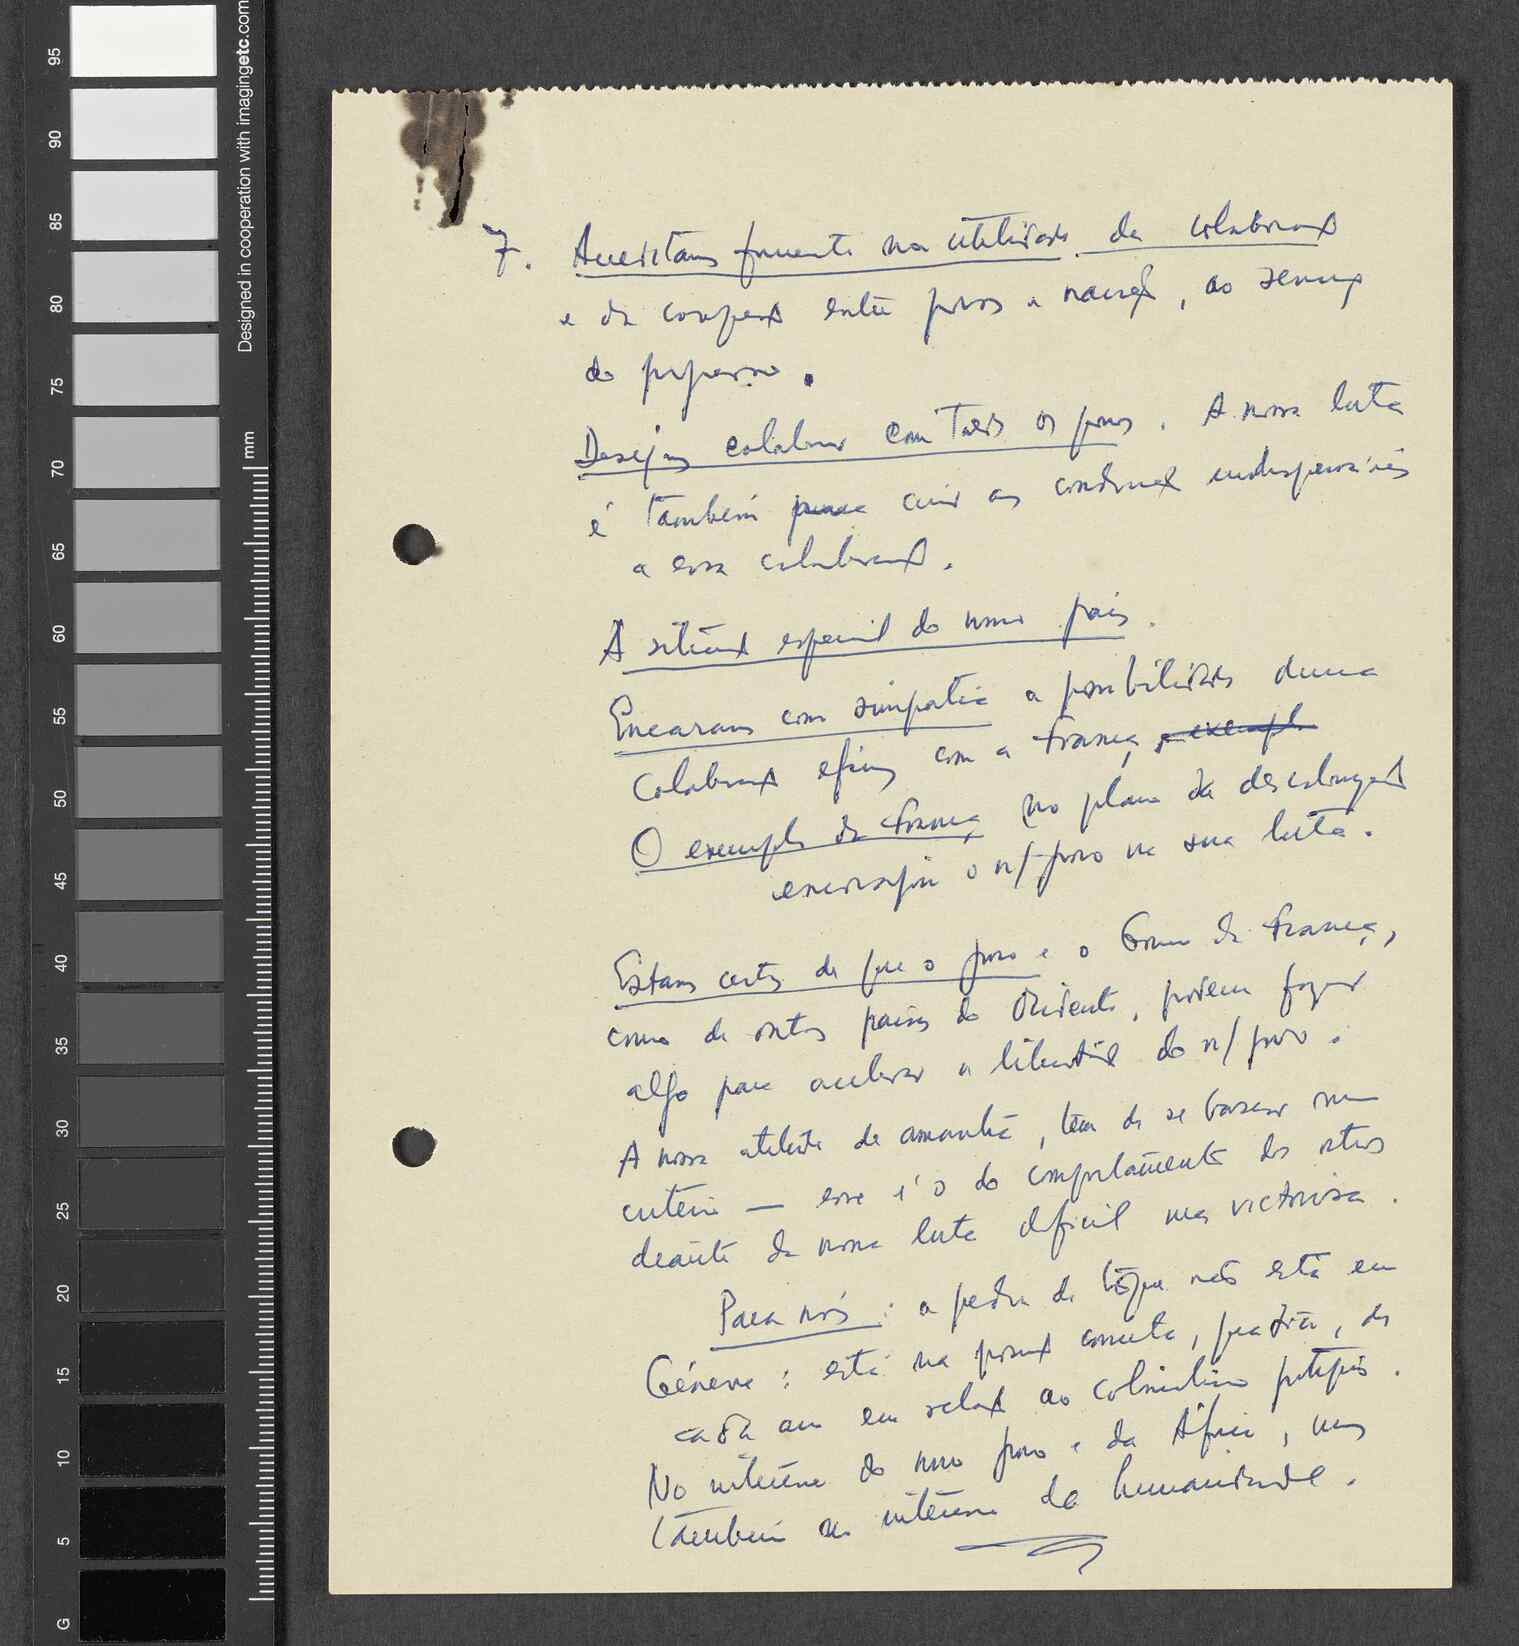 7. Acreditamos firmemente na utilidade da colaboração
e da cooperação entre povos e nações, ao serviço
do progresso.
Desejamos colaborar com todos os povos. A nossa luta
é também para criar as condições indispensáveis
a essa colaboração.
A situação especial do nosso país.
Encaramos com simpatia a possibilidade duma
colaboração eficaz com a França, o exemplo
O exemplo da França no plano da descolonização
encoraja o n/povo na sua luta.
Estamos certos de que o povo e o Governo da França,
como de outros países do Ocidente, podem fazer
algo para acelerar a libertação do n/povo.
A nossa atitude de amanhã, tem de se basear num
critério — esse é o do comportamento dos outros
deante da nossa luta difícil mas victoriosa.
Para nós: a pedra de toque não está em
Géneve: está na posição concreta, quotidiana, de
cada um em relação ao colonialismo português.
No interesse do nosso povo e da África, mas
também no interesse da humanidade.
95
90
85
80
75
70
65
60
55
50
45
40
35
30
25
20
15
10
5
G
mm
Designed in cooperation with imagingetc.com